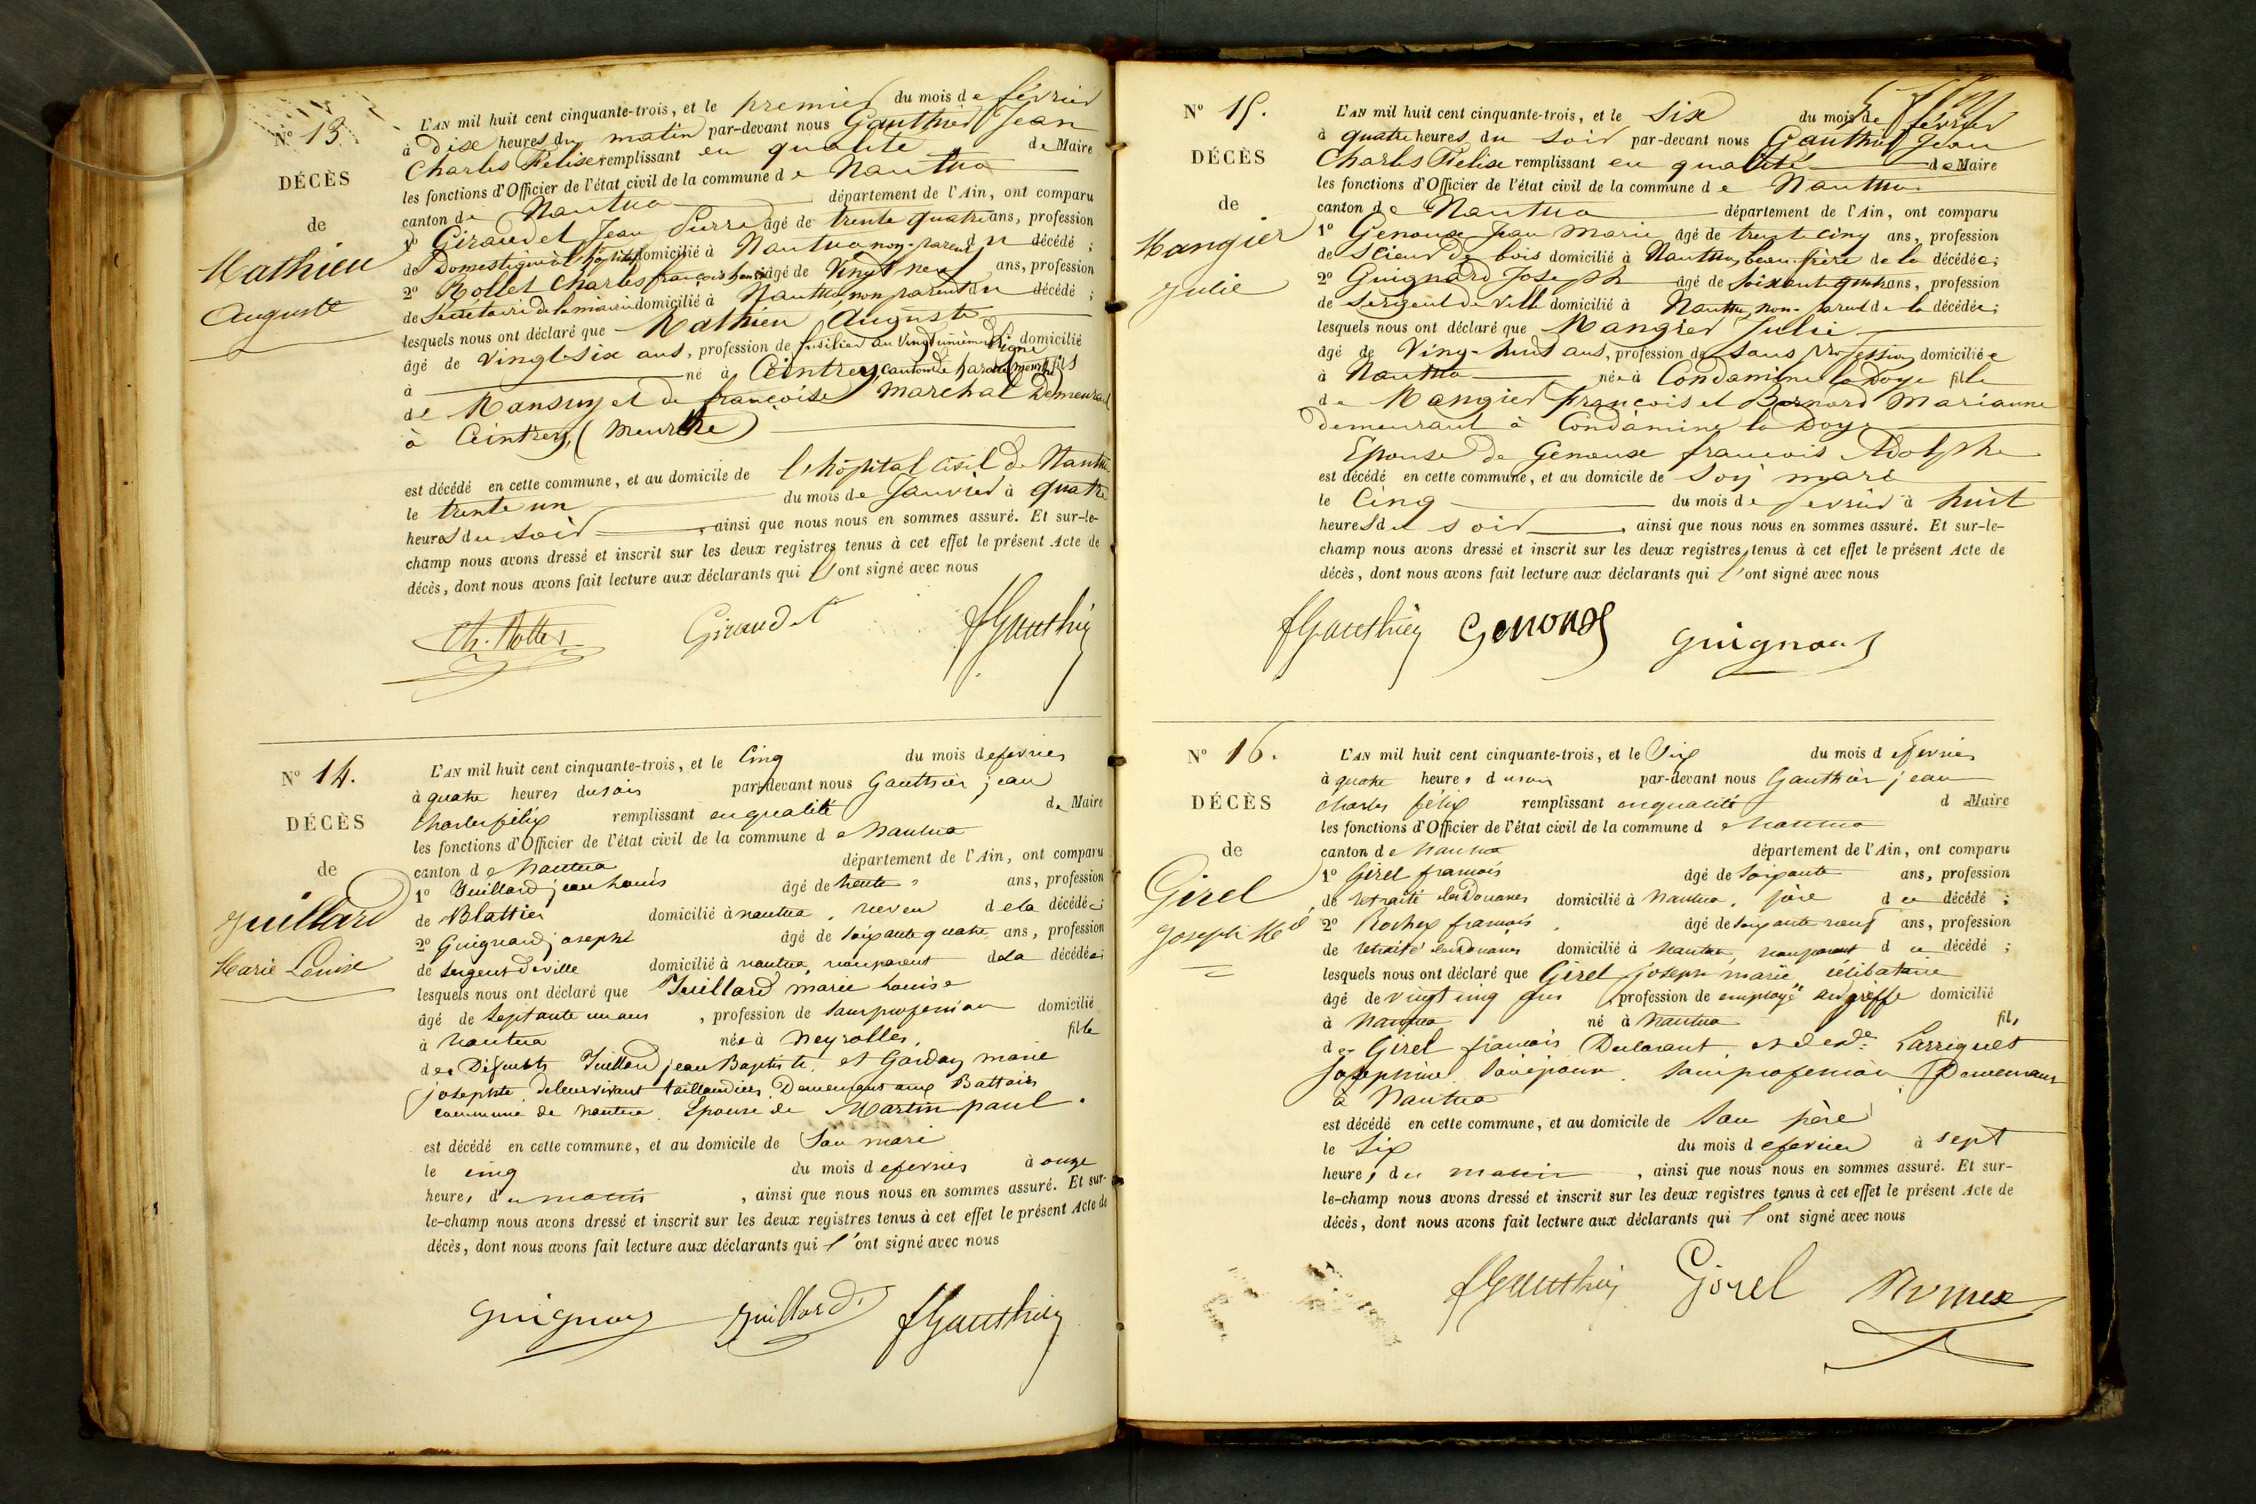 N° 13.
DÉCÈS
de
Mathieu
Auguste
L'AN mil huit cent cinquante-trois, et le premier du mois de février
à dix heures du matin par-devant nous Gauthier Jean
Charles Félix remplissant en qualité de Maire
les fonctions d'Officier de l'état civil de la commune de Nantua
canton de Nantua département de l'Ain, ont comparu
1° Giraudet Jean Pierre âgé de trente quatre ans, profession
de Domestique à l'hôpital domicilié à Nantua non-parent du décédé ;
2° Rollet Charles françois âgé de Vingt neuf ans, profession
de Secrétaire de la mairie domicilié à Nantua non parent du décédé ;
lesquels nous ont déclaré que Mathieu Auguste
âgé de Vingt-six ans, profession de fusilier au Vingt unième Ligne domicilié
à né à Ceintrey, canton de haroué (meurthe) fils
de Mansuy et de françoise Marchal Demeurant
à Ceintrey, (Meurthe)
est décédé en cette commune, et au domicile de l'hôpital Civil de Nantua
le trente un du mois de Janvier à quatre
heures du soir , ainsi que nous nous en sommes assuré. Et sur-le-
champ nous avons dressé et inscrit sur les deux registres tenus à cet effet le présent Acte de
décès, dont nous avons fait lecture aux déclarants qui l'ont signé avec nous
Ch. Rollet Giraudet fGauthier
N° 14.
DÉCÈS
de
Juillard
Marie Louise
L'AN mil huit cent cinquante-trois, et le Cinq du mois de fevrier
à quatre heures du soir par-devant nous Gauthier jean
charles félix remplissant en qualité de Maire
les fonctions d'Officier de l'état civil de la commune de Nantua
canton de Nantua département de l'Ain, ont comparu
1° Juillard jean Louis âgé de trente ans, profession
de Blattier domicilié à nantua, neveu de la décédée ;
2° Guignard joseph âgé de soixante quatre ans, profession
de sergent de ville domicilié à nantua, non parent de la décédée ;
lesquels nous ont déclaré que Juillard marie Louise
âgé de Septante un ans , profession de sans profession domicilié
à nantua née à Neyrolles, fille
des Défunts Juillard jean Baptiste et Gorday marie
josephte de leur vivant taillandiers Demeurant aux Battoirs
commune de nantua. Epouse de Martin paul.
est décédé en cette commune, et au domicile de Son mari
le cinq du mois de fevrier à onze
heures du matin , ainsi que nous nous en sommes assuré. Et sur-
le-champ nous avons dressé et inscrit sur les deux registres tenus à cet effet le présent Acte de
décès, dont nous avons fait lecture aux déclarants qui l'ont signé avec nous
Guignard Juillard fGauthier
N° 15.
DÉCÈS
de
Mangier
Julie
L'AN mil huit cent cinquante-trois, et le six du mois de février
à quatre heures du soir par-devant nous Gauthier Jean
Charles Félix remplissant en qualité de Maire
les fonctions d'Officier de l'état civil de la commune de Nantua
canton de Nantua département de l'Ain, ont comparu
1° Genoux Jean Marie âgé de trente cinq ans, profession
de Scieur de bois domicilié à Nantua, beau-frère de la décédée ;
2° Guignard Joseph âgé de Soixante quatre ans, profession
de Sergent de Ville domicilié à Nantua, non-parent de la décédée ;
lesquels nous ont déclaré que Mangier Julie
âgé de Ving-huit ans, profession de sans profession domiciliée
à Nantua née à Condamine la Doye fille
de Mangier françois et Bernard Marianne
demeurant à Condamine la Doye
Epouse de Genoux françois Adolphe
est décédé en cette commune, et au domicile de Son mari
le Cinq du mois de fevrier à huit
heures du soir , ainsi que nous nous en sommes assuré. Et sur-le-
champ nous avons dressé et inscrit sur les deux registres tenus à cet effet le présent Acte de
décès, dont nous avons fait lecture aux déclarants qui l'ont signé avec nous
fGauthier Genoux Guignard
N° 16.
DÉCÈS
de
Girel
Joseph Mie
L'AN mil huit cent cinquante-trois, et le Six du mois de fevrier
à quatre heures du soir par-devant nous Gauthier jean
charles félix remplissant en qualité de Maire
les fonctions d'Officier de l'état civil de la commune de Nantua
canton de Nantua département de l'Ain, ont comparu
1° Girel francois âgé de Soixante ans, profession
de retraité des Douanes domicilié à Nantua, père du décédé ;
2° Rochex francois âgé de soixante neuf ans, profession
de retraité des Douanes domicilié à Nantua, non parent du décédé ;
lesquels nous ont déclaré que Girel joseph marie célibataire
âgé de vingt cinq ans profession de employé au greffe domicilié
à Nantua né à Nantua fils
de Girel francois Déclarant, et de de Larriguet
Josephine Son épouse sans profession Demeurant
à Nantua
est décédé en cette commune, et au domicile de Son père
le Six du mois de fevrier à sept
heures du matin , ainsi que nous nous en sommes assuré. Et sur-
le-champ nous avons dressé et inscrit sur les deux registres tenus à cet effet le présent Acte de
décès, dont nous avons fait lecture aux déclarants qui l'ont signé avec nous
fGauthier Girel